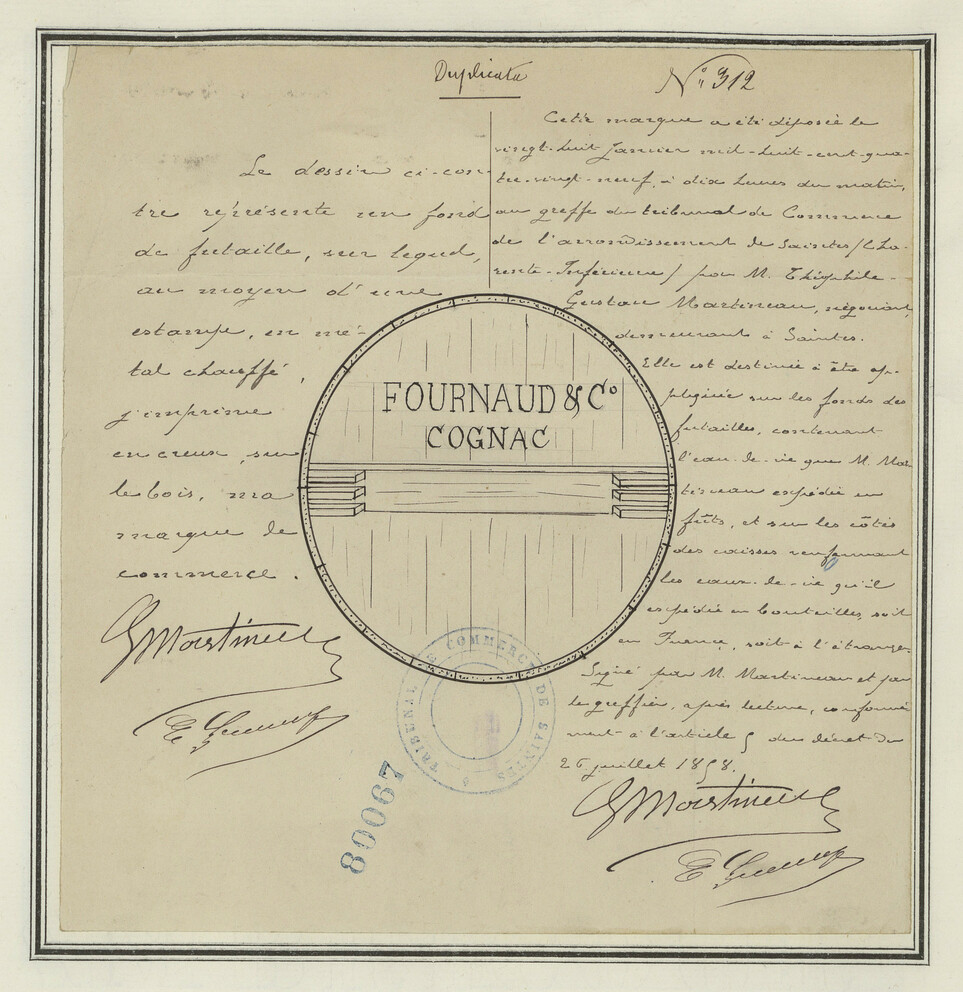 Duplicata
N° 312
Le dessin ci-con-
tre représente un fond
de futaille, sur lequel,
au moyen d'une
estampe, en mé-
tal chauffé,
j'imprime
en creux, sur
le bois, ma
marque de
commerce.
GMartineau
FOURNAUD & Co
COGNAC
Cette marque a été déposée le
vingt-huit Janvier mil-huit-cent-qua-
tre-vingt-neuf, à dix heures du matin,
au greffe du tribunal de Commerce
de l'arrondissement de Saintes (Cha-
rente-Inférieure) par M. Théophile-
Gustave Martineau, négociant,
demeurant à Saintes.
Elle est destinée à être ap-
pliquée sur les fonds des
futailles, contenant
l'eau-de-vie que M. Mar
tineau expédie en
fûts, et sur les côtés
des caisses renfermant
les eaux-de-vie qu'il
expédie en bouteilles, soit
en France, soit à l'étranger
Signé par M. Martineau et par
le greffier, après lecture, conformé
ment à l'article 5 du décret du
26 juillet 1858.
GMartineau
TRIBUNAL DE COMMERCE DE SAINTES
80067